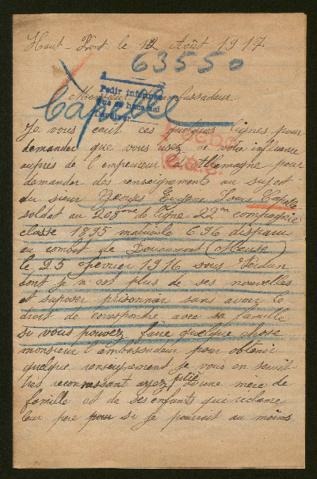 Haut-Pont le 12 Août 1917
63550
Monsieur l'ambassadeur
Pedir informes
Capelle
Je vous ecrit ces quelques lignes pour
demander que vous usez de votre influence
aupres de l'empereur d'Allemagne pour
demander des renseignements au sujet
du sieur Georges Eugène Louis Capelle
soldat au 208me de ligne 22me compagnie
classe 1895 matricule 696 disparu
au combat de Douaumont (Meuse)
le 25 fevrier 1916 sous Verdun
dont je n'ai plus de ses nouvelles
et suposer prisonnier sans avoir le
droit de correspondre avec sa famille
si vous pouvez faire quelque chose
monsieur l'ambassadeur pour obtenir
quelque renseignement je vous en serait
très reconnaissant ayez pitié d'une mere de
famille et de ses enfants que reclame
leur pere pour si je pourrait au moins